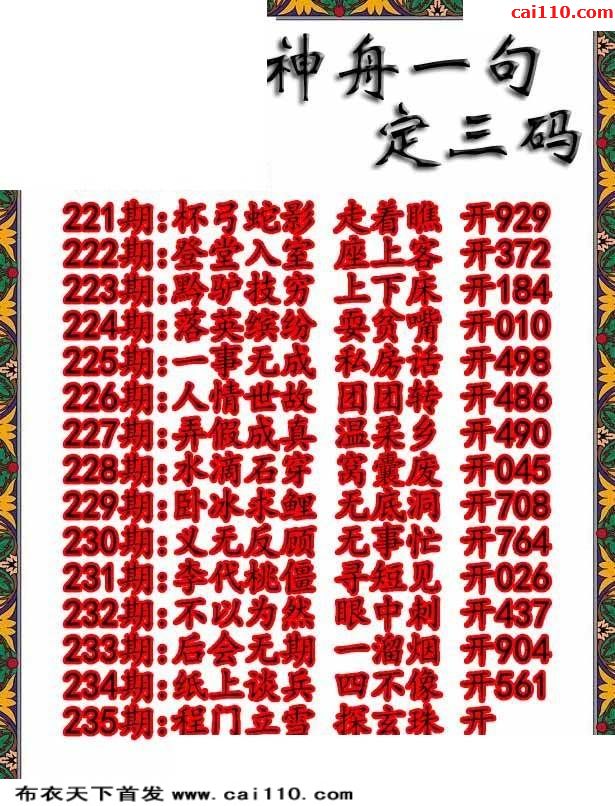 cai110.com
神舟一句
定三码
221期:杯弓蛇影 走着瞧 开929
222期:登堂入室 座上客 开372
223期:黔驴技穷 上下床 开184
224期:落英缤纷 耍贫嘴 开010
225期:一事无成 私房话 开498
226期:人情世故 团团转 开486
227期:弄假成真 温柔乡 开490
228期:水滴石穿 窝囊废 开045
229期:卧冰求鲤 无底洞 开708
230期:义无反顾 无事忙 开764
231期:李代桃僵 寻短见 开026
232期:不以为然 眼中刺 开437
233期:后会无期 一溜烟 开904
234期:纸上谈兵 四不像 开561
235期:程门立雪 探玄珠 开
布衣天下首发 www.cai110.com